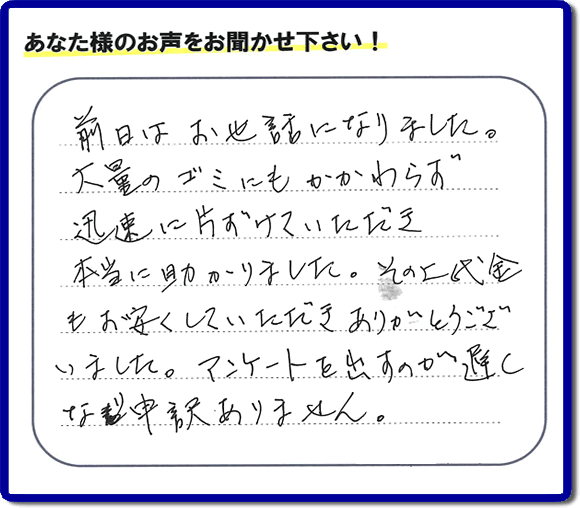 あなた様のお声をお聞かせ下さい！
前日はお世話になりました。
大量のゴミにもかかわらず
迅速に片ずけていただき
本当に助かりました。その上代金
もお安くしていただきありがとうござ
いました。アンケートを出すのが遅く
な申訳ありません。